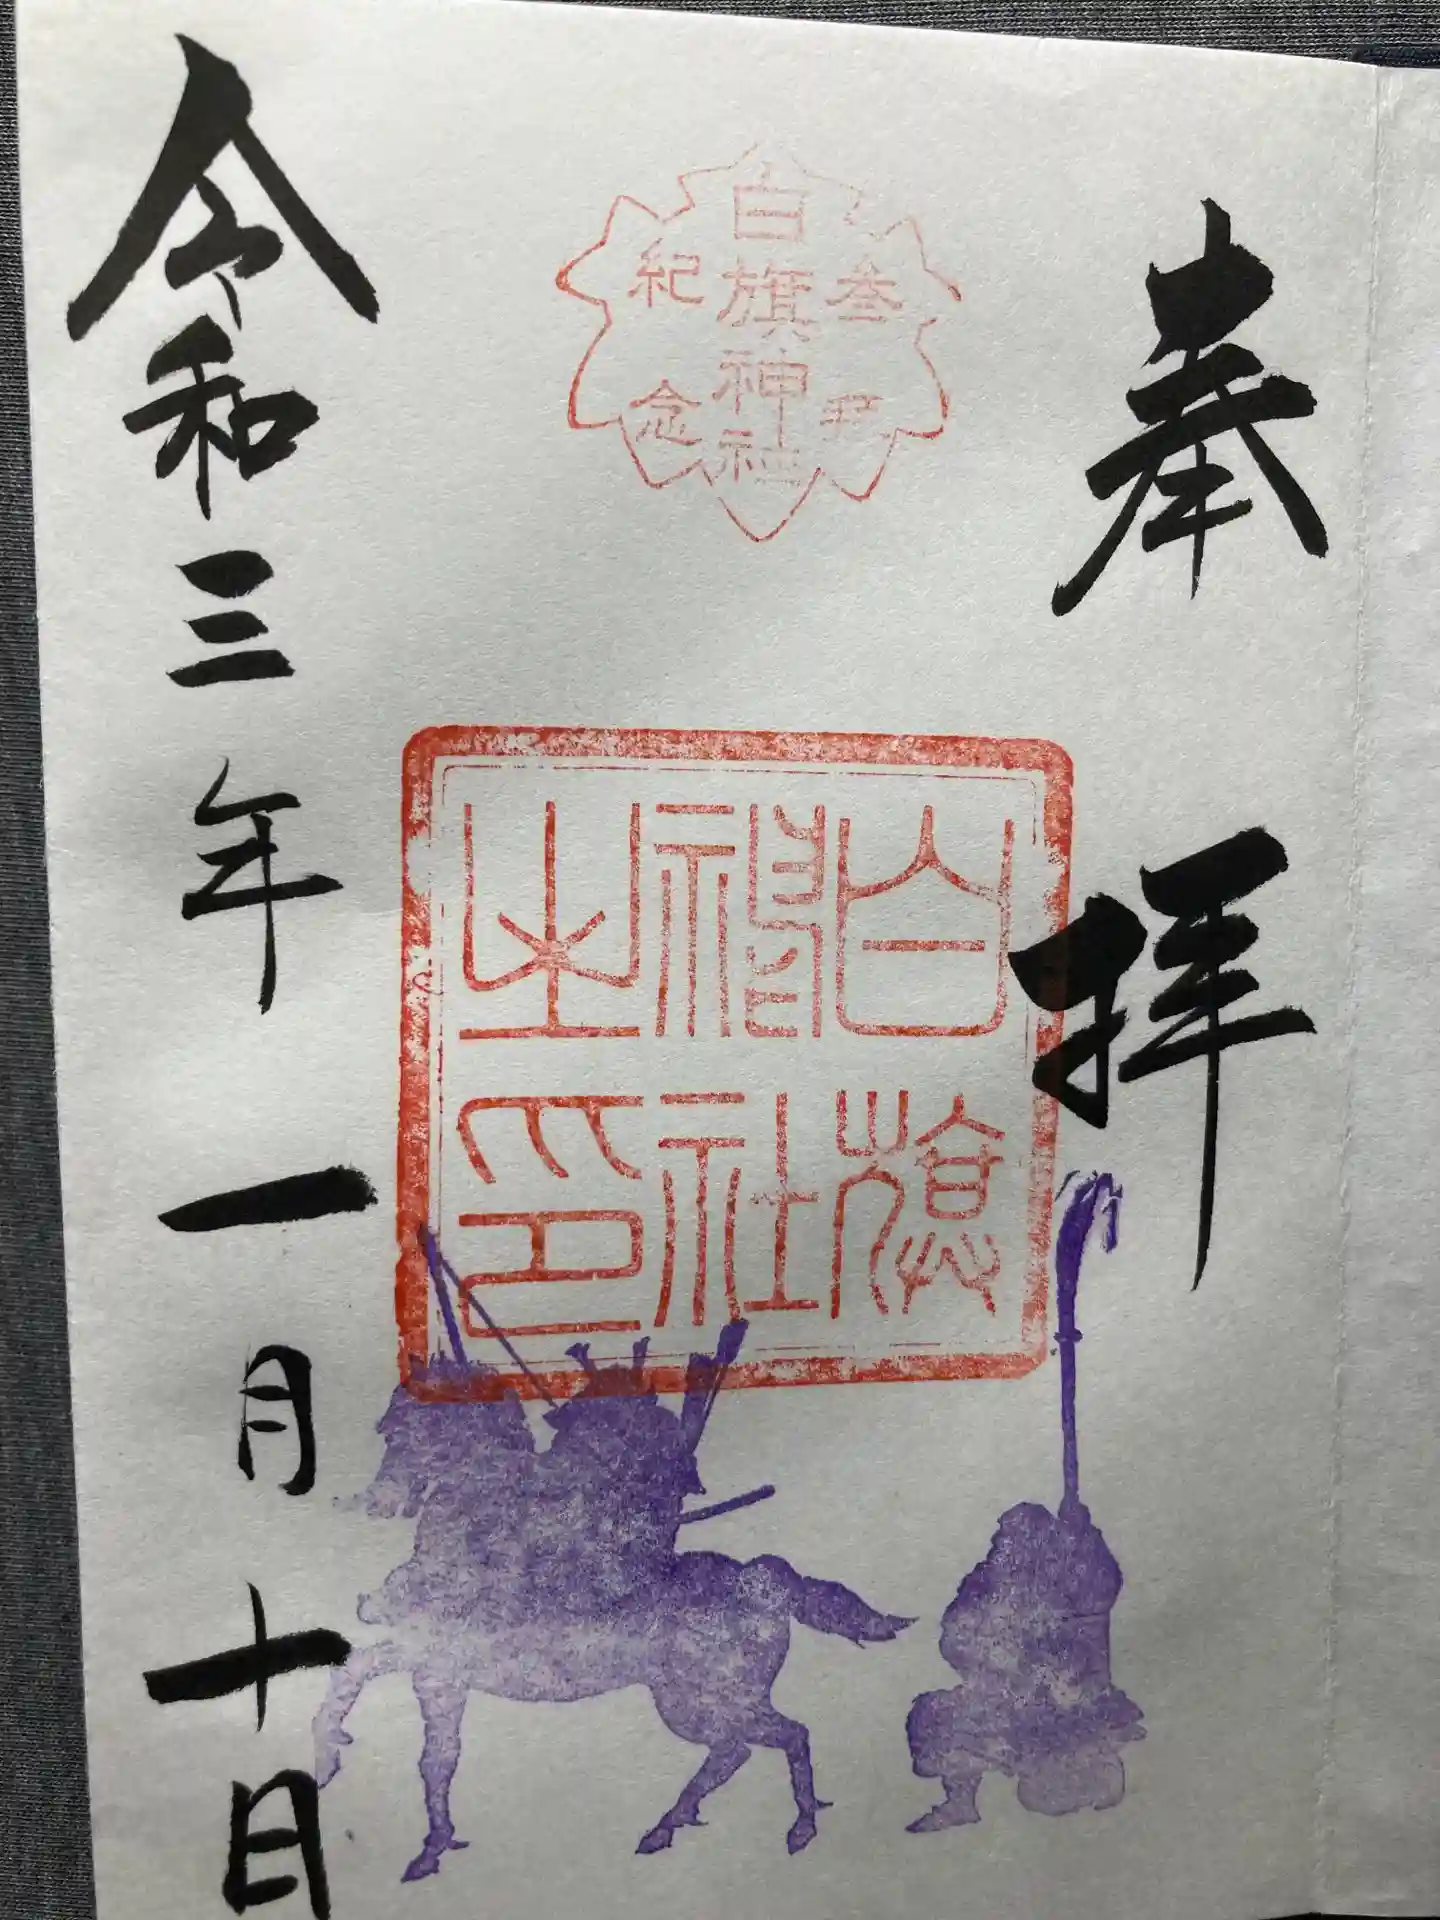 奉拝
白旗神社
参拝
紀念
白旗
神社
之印
令和三年一月十日